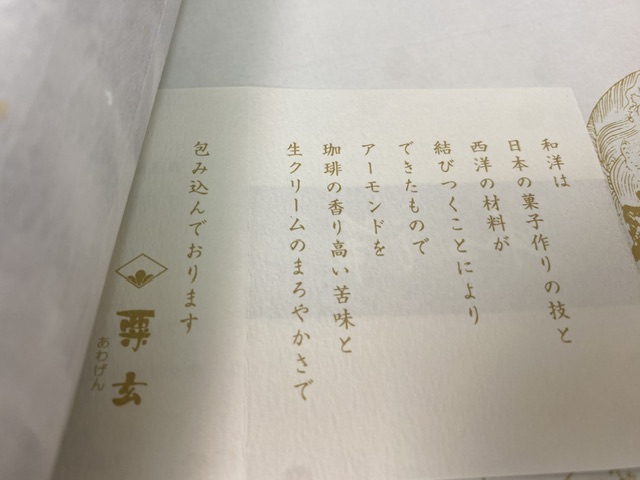 和洋は
日本の菓子作りの技と
西洋の材料が
結びつくことにより
できたもので
アーモンドを
珈琲の香り高い苦味と
生クリームのまろやかさで
包み込んでおります
粟玄
あわげん